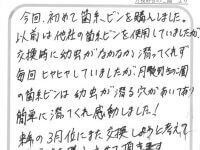 今回、初めて菌糸ビンを購入しました。
以前は他社の菌糸ビンを使用していましたが
交換時に幼虫がなかなか潜ってくれず
毎回ヒヤヒヤしていましたが月夜野きのこ園
の菌糸ビンは幼虫が潜る穴があいており
簡単に潜ってくれ感動しました！
来年の3月位にまた交換しようと考えて